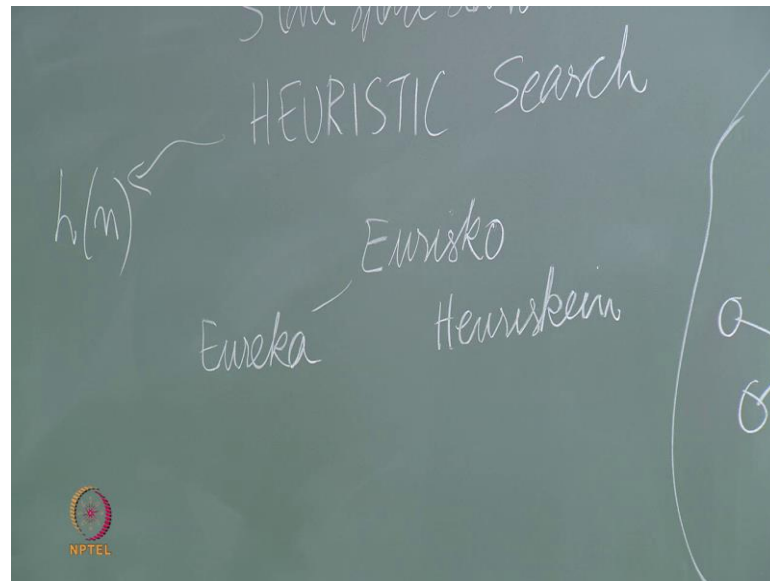 HEURISTIC Search
h(n)
Eurisko
Eureka
Heuriskein
NPTEL